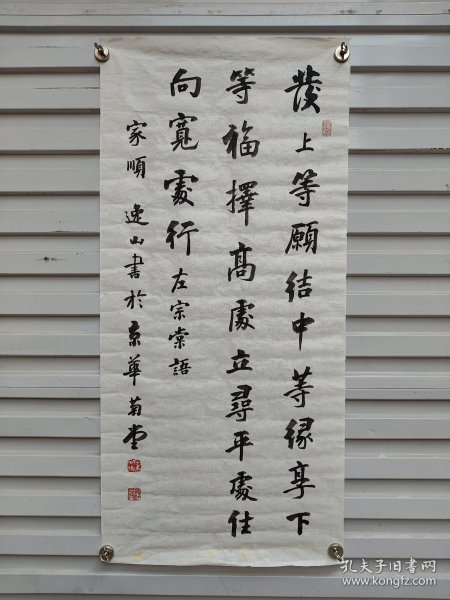 發上等願结中等緣享下
等福擇高處立尋平處住
向寬處行左宗棠語
家順逸山書於京華菊堂
孔夫子旧书网
www.kongfz.com